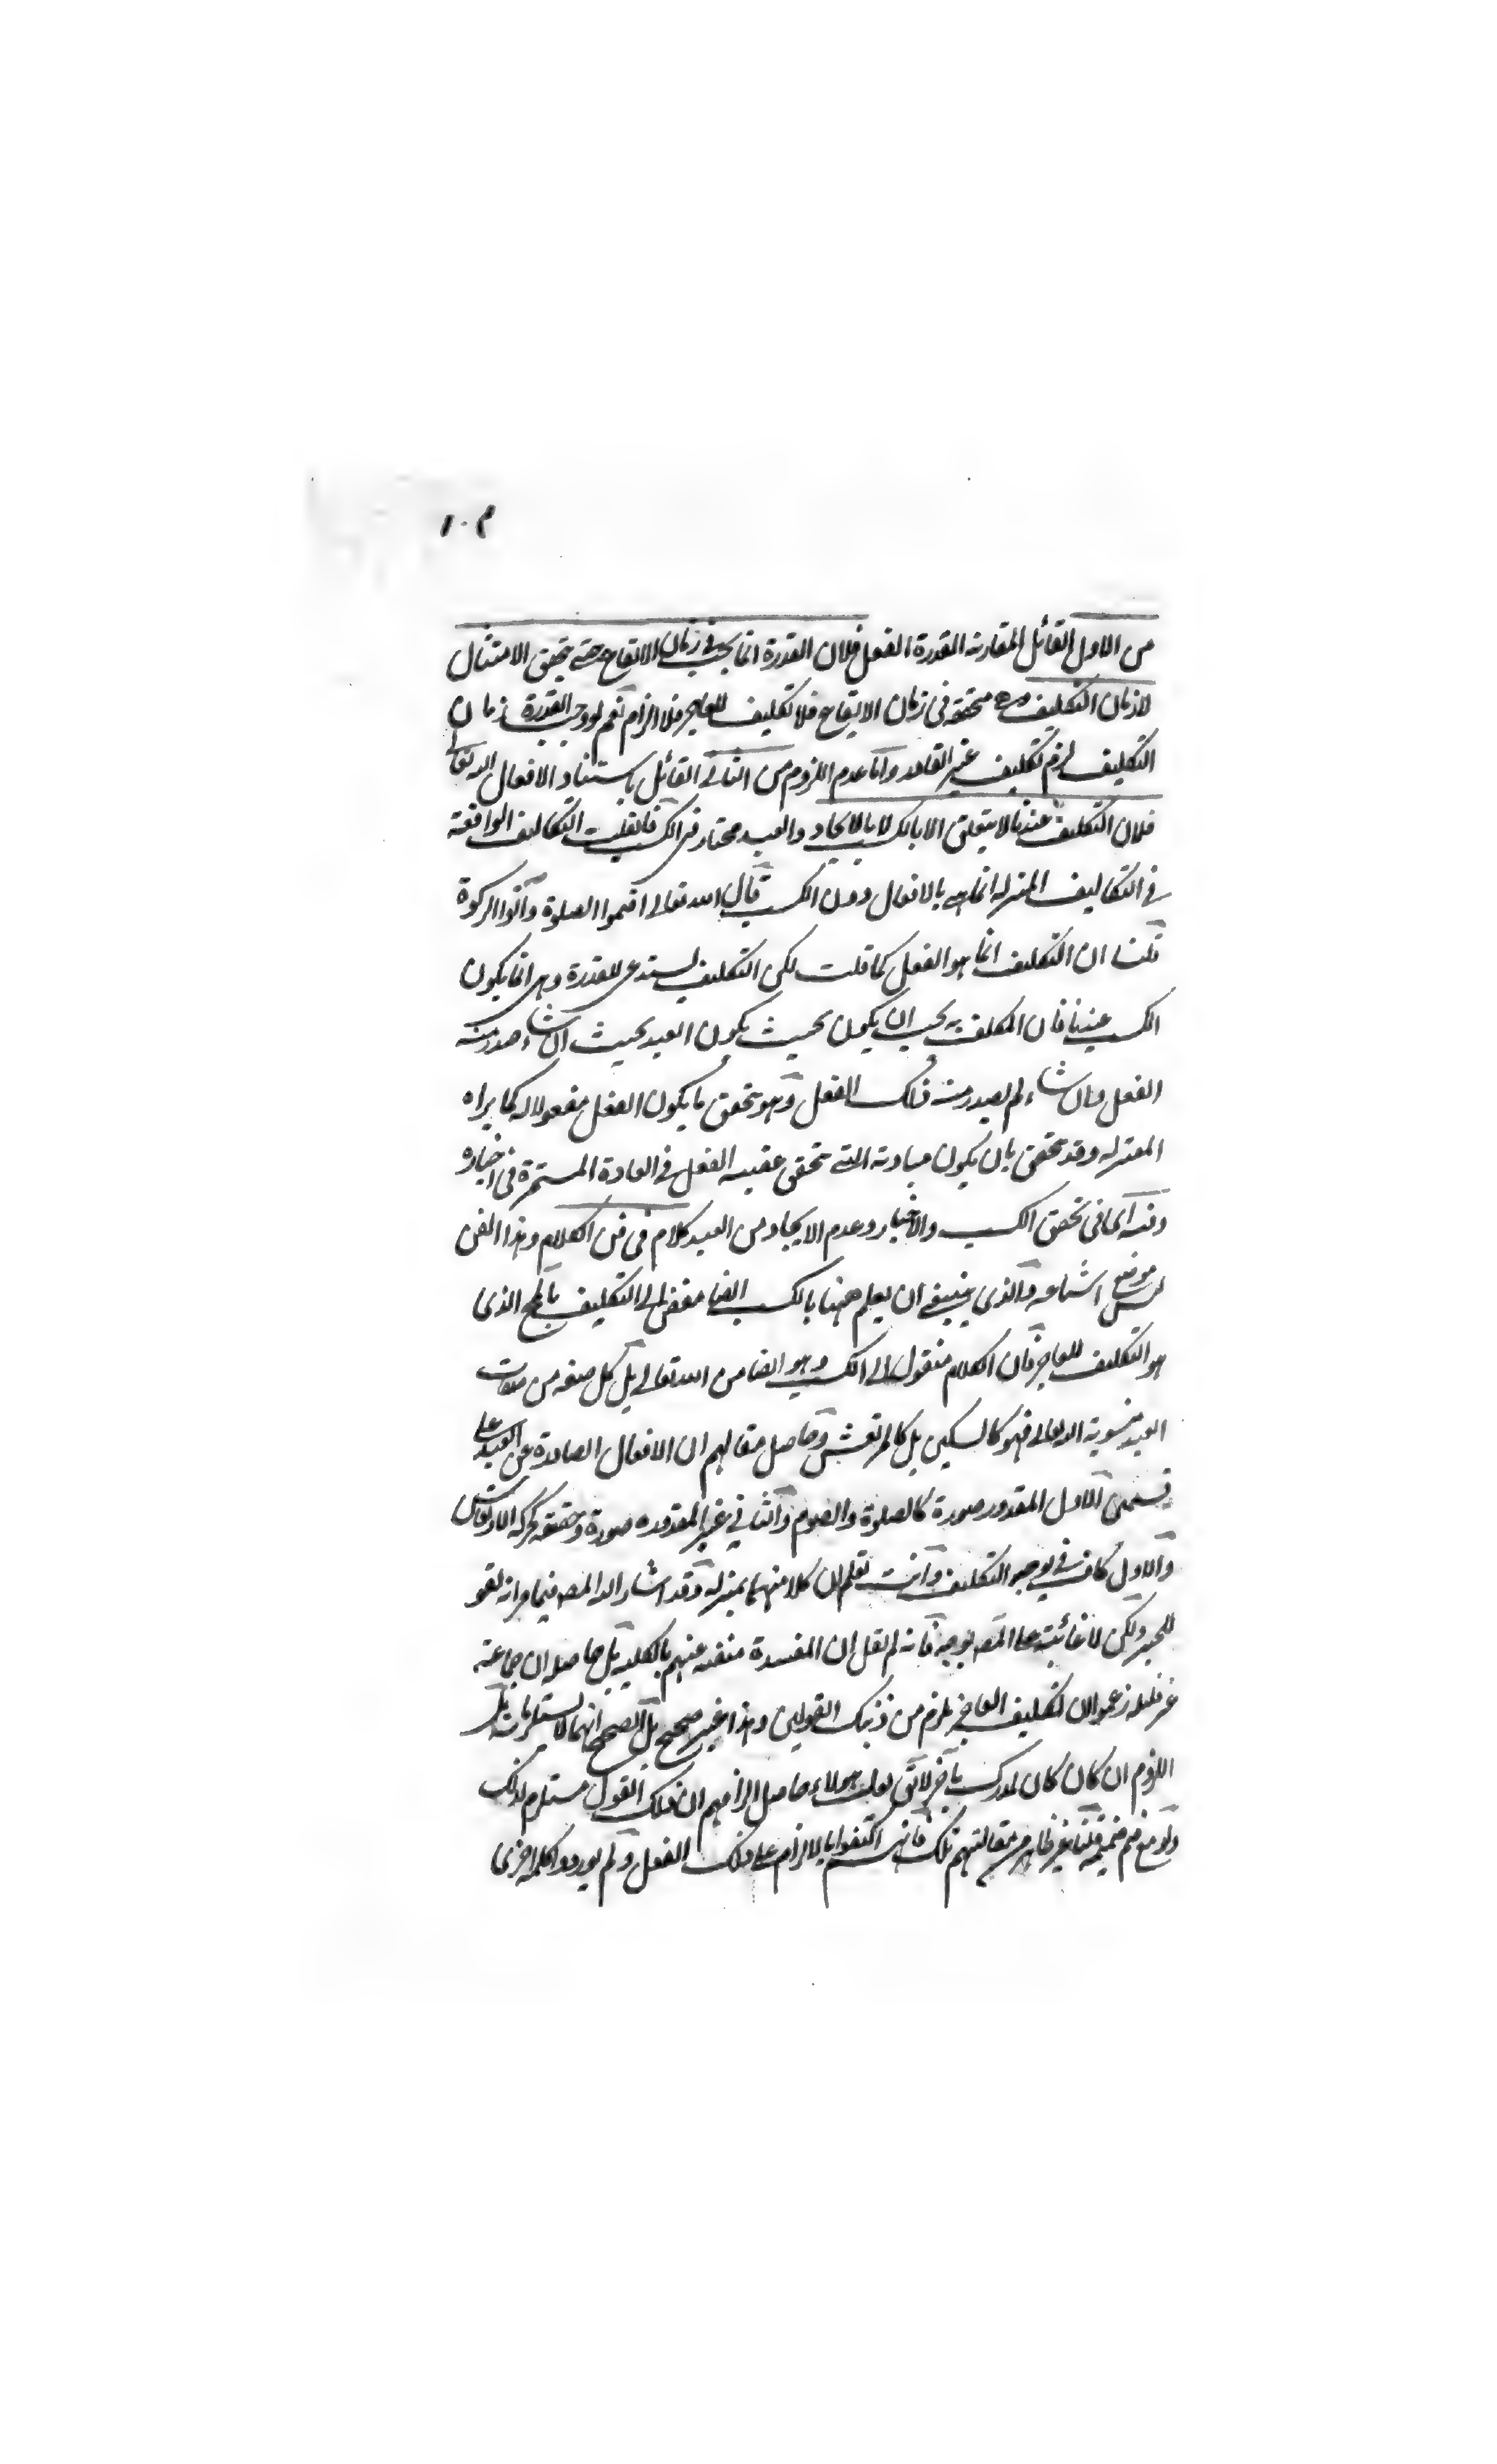 ١٠٤
من الاول القائل المقارنة القدرة الفعل فلان القدرة انما يجب في زمان الايقاع حتى يتحقق الامتثال
لا زمان التكليف وح متحققه في زمان الايقاع فلا تكليف للعاجز فلا الزام نعم لو وجب القدرة زمان
التكليف لزم تكليف غير القادر واما عدم اللزوم من الثاني القائل باستناد الافعال اليه تعالى
فلان التكليف عندنا لا يتعلق الا بالكسب لا بالايجاد والعبد مختار في الكسب فان قلت التكاليف الواقعة
في التكاليف المنزله انما هي بالافعال دون الكسب قال الله تعالى اقيموا الصلوة وآتوا الزكوة
قلنا ان التكليف انما هو الفعل كما قلت لكن التكليف يستدعى للقدرة وهى انما يكون
الكسب عندنا فان المكلف به يجب ان يكون بحيث يكون العبد بحيث ان شاء صدر منه
الفعل وان شاء لم يصدر منه ذلك الفعل وهو يتحقق ما يكون الفعل مفعولا له كما يراه
المعتزله وقد يتحقق بان يكون مباديه التي تتحقق عقيبه الفعل في العادة المستمرة في اختياره
وفيه اى في تحقق الكسب والاختيار وعدم الايجاد من العبد كلام في فن الكلام وهذا الفن
ليس موضع اشباعه والذى ينبغي ان يعلم ههنا بالكسب ايضا مفض الى التكليف بالمح الذى
هو التكليف للعاجز فان الكلام منقول الى الكسب وهو ايضا من الله تعالى بل كل صفه من صفات
العبد منسوبة اليه تعالى فهو كالسكين بل كالمرتعش وحاصل مقالهم ان الافعال الصادرة عن العبد على
قسمين الاول المقدور صورة كالصلوة والصوم والثاني غير المقدوره صورة وحقيقه كحركه الارتعاش
والاول كاف في توجه التكليف وانت تعلم ان كلا منهما بمنزله وقد اشار اليه المصه فيما مر انه لغو
للجبر ولكن لا غائبته على المصه بوجه فانه لم يقل ان المفسدة منفيه عنهم بالكليه بل حاصله ان جماعة
زعموا ان تكليف العاجز يلزم من ذينك القولين وهذا غير صحيح بل الصحيح انهما لا يستلزمانه بل
اللزوم ان كان كان لمدرك بآخر لائق لعل هولاء حاصل الزامهم ان ذلك القول مستلزم لذلك
ولو مع ضم ضميمة قلنا غير ظاهر مقالتهم تلك فانهم اكتفوا بالالزام على ذلك الفعل ولم يوردوا كلمة اخرى